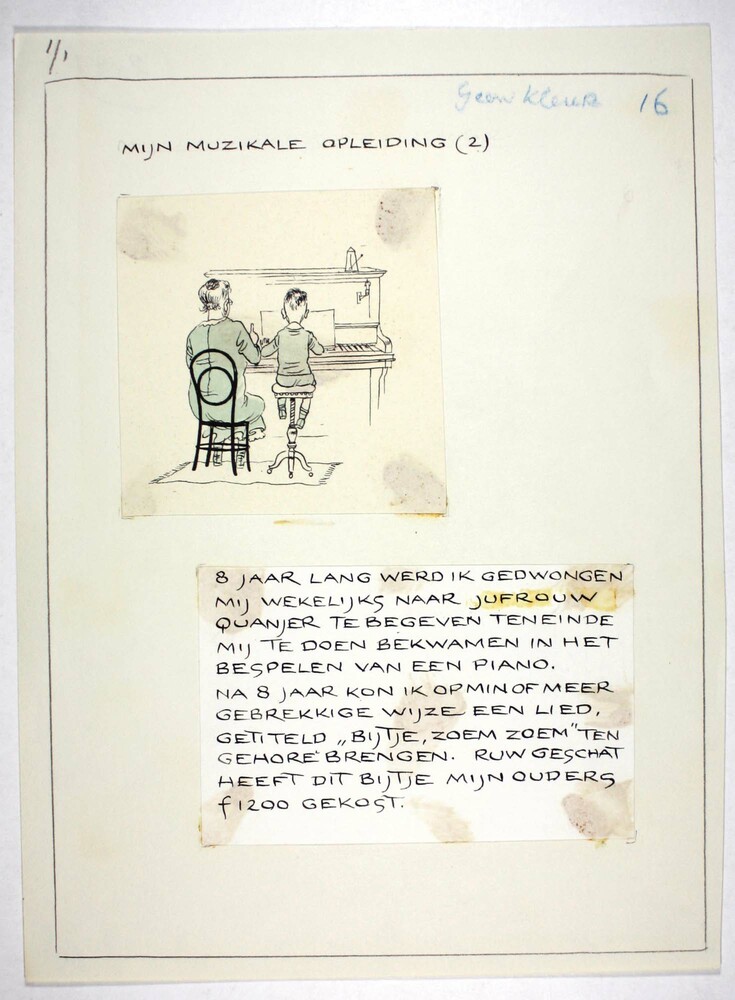 1/1
Geen kleur 16
MIJN MUZIKALE OPLEIDING (2)
8 JAAR LANG WERD IK GEDWONGEN
MIJ WEKELIJKS NAAR JUFROUW
QUANJER TE BEGEVEN TENEINDE
MIJ TE DOEN BEKWAMEN IN HET
BESPELEN VAN EEN PIANO.
NA 8 JAAR KON IK OP MIN OF MEER
GEBREKKIGE WIJZE EEN LIED,
GETITELD „BIJTJE, ZOEM ZOEM" TEN
GEHORE BRENGEN. RUW GESCHAT
HEEFT DIT BIJTJE MIJN OUDERS
f 1200 GEKOST.